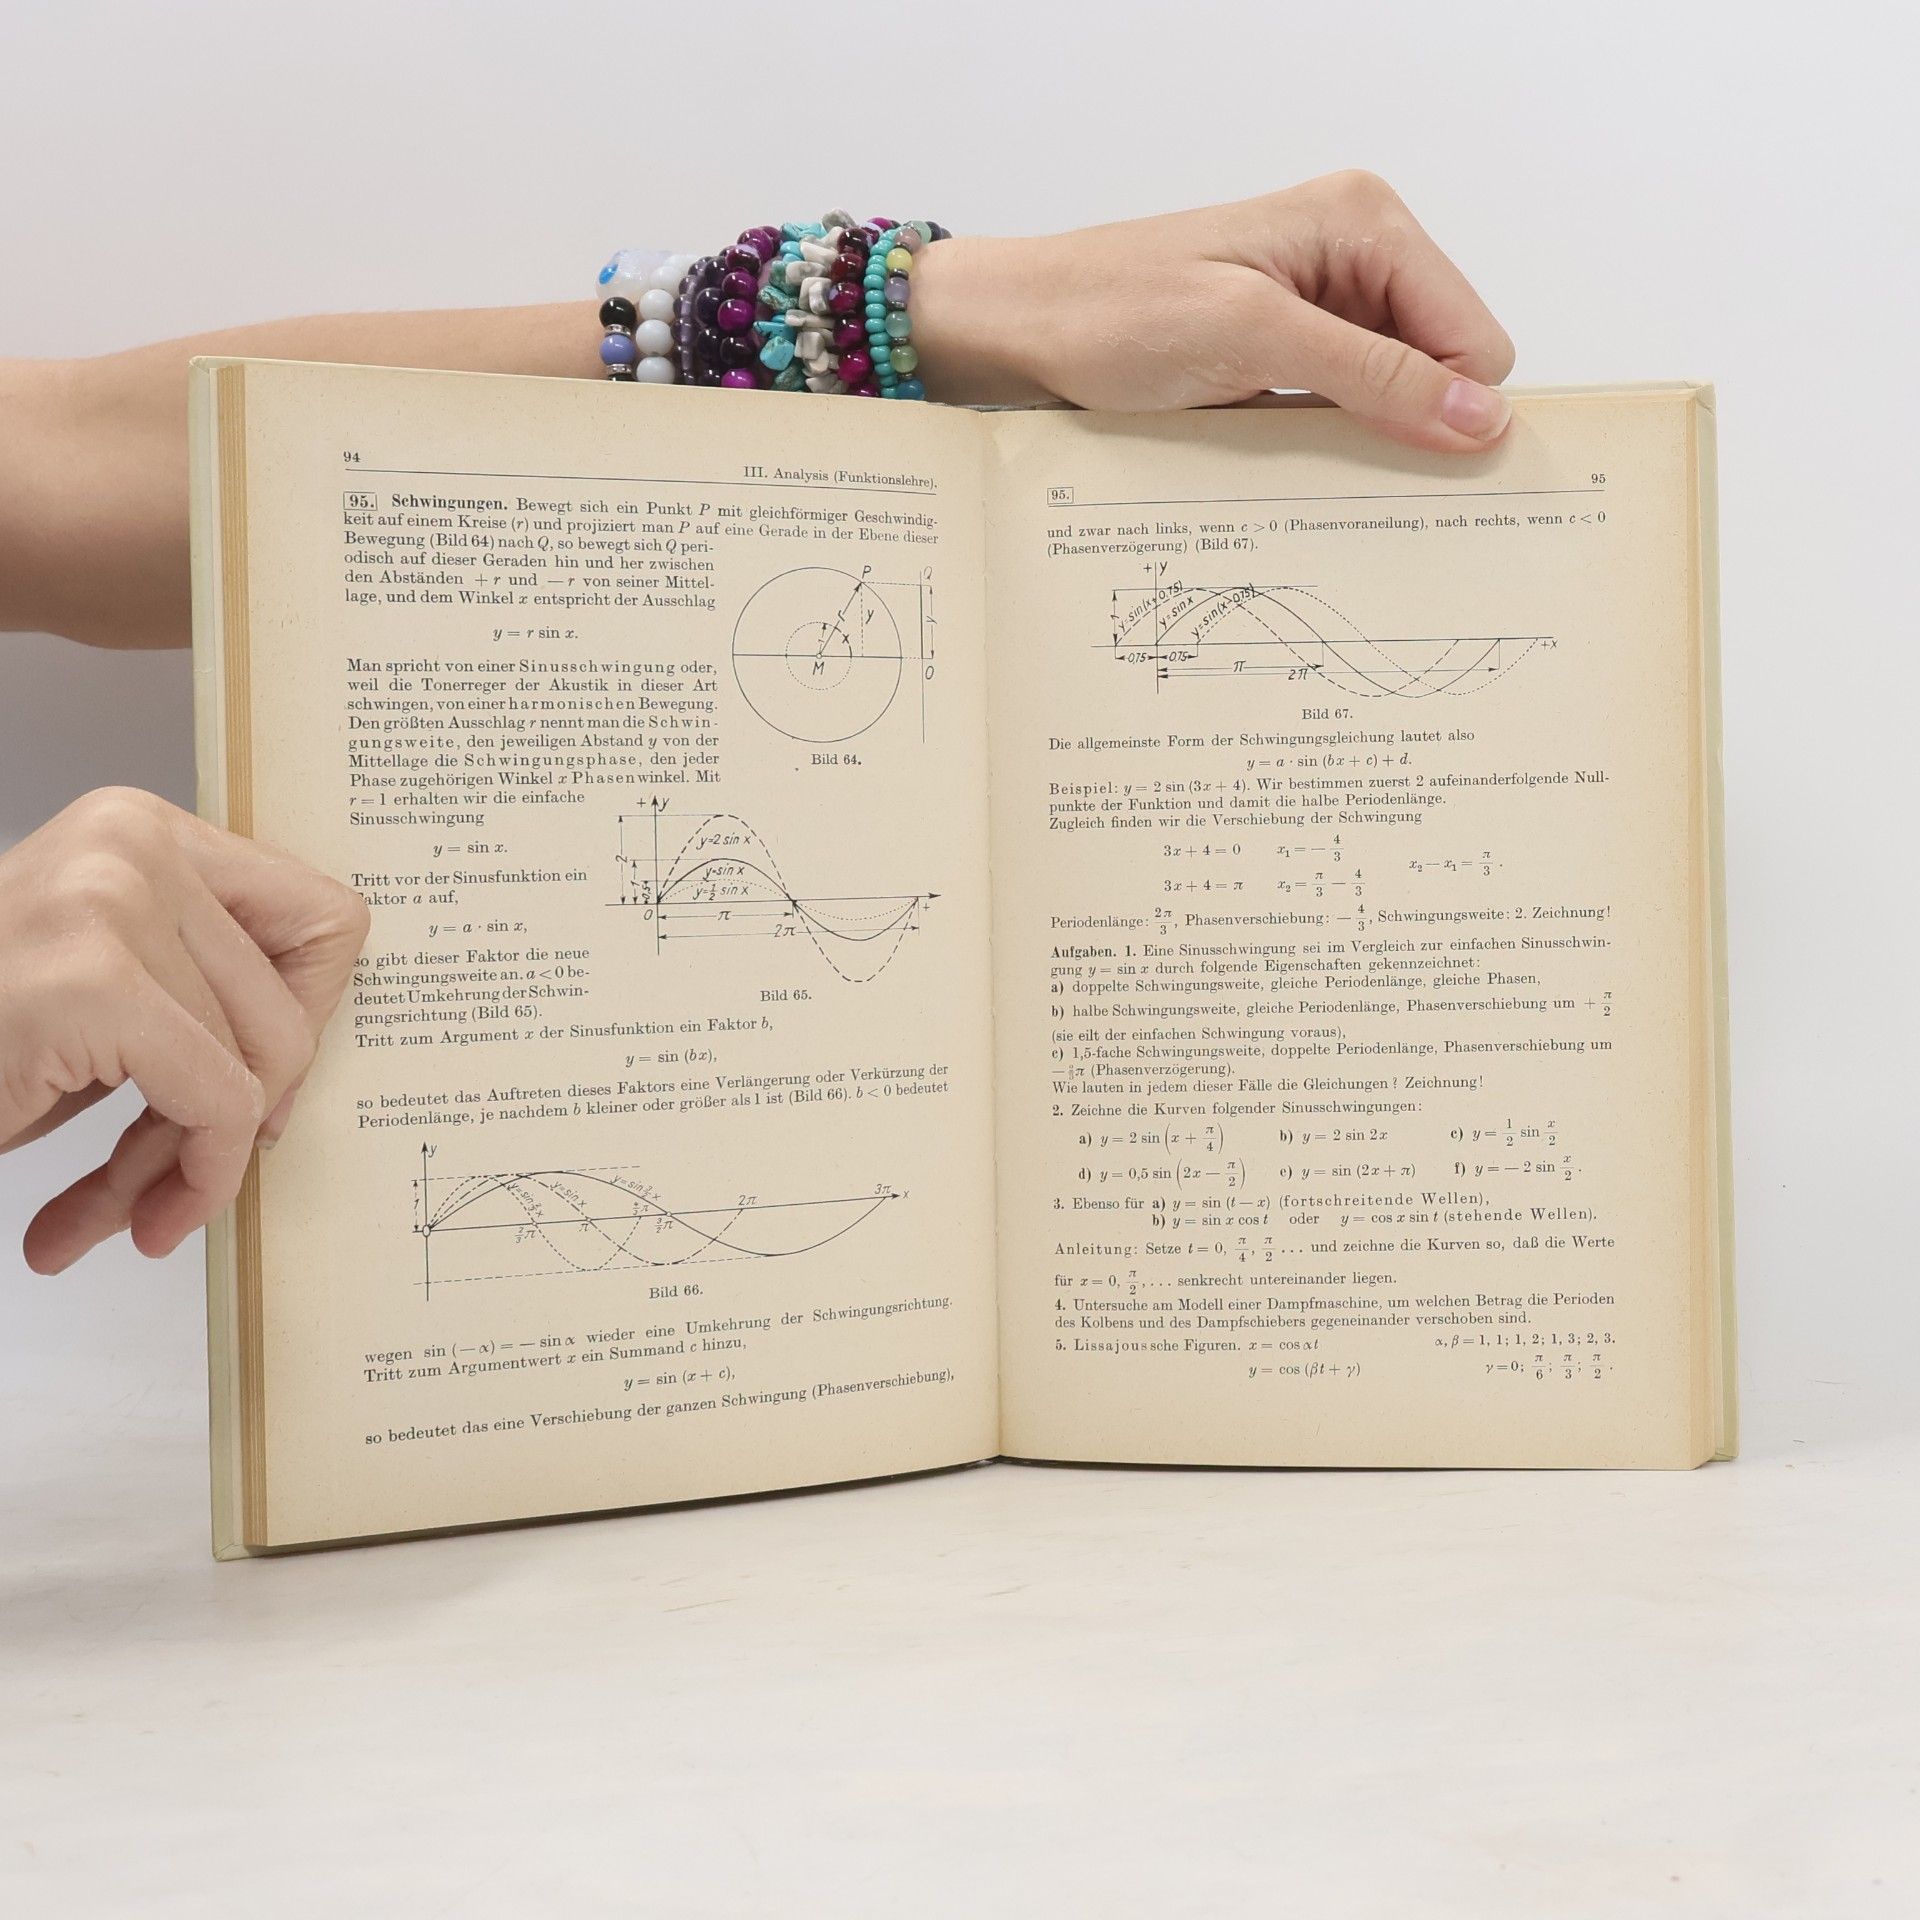 94
III. Analysis (Funktionslehre).
95. Schwingungen. Bewegt sich ein Punkt P mit gleichförmiger Geschwindig-
keit auf einem Kreise (r) und projiziert man P auf eine Gerade in der Ebene dieser
Bewegung (Bild 64) nach Q, so bewegt sich Q peri-
odisch auf dieser Geraden hin und her zwischen
den Abständen + r und — r von seiner Mittel-
lage, und dem Winkel x entspricht der Ausschlag
y = r sin x.
Man spricht von einer Sinusschwingung oder,
weil die Tonerreger der Akustik in dieser Art
schwingen, von einer harmonischen Bewegung.
Den größten Ausschlag r nennt man die Schwin-
gungsweite, den jeweiligen Abstand y von der
Mittellage die Schwingungsphase, den jeder
Phase zugehörigen Winkel x Phasenwinkel. Mit
P
Q
r
y
y
x
M
O
Bild 64.
r = 1 erhalten wir die einfache
Sinusschwingung
y = sin x.
Tritt vor der Sinusfunktion ein
aktor a auf,
y = a · sin x,
so gibt dieser Faktor die neue
Schwingungsweite an. a < 0 be-
deutet Umkehrung der Schwin-
gungsrichtung (Bild 65).
+ y
2
1
0,5
y=2 sin x
y=sin x
y=½ sin x
0
π
2π
+
Bild 65.
Tritt zum Argument x der Sinusfunktion ein Faktor b,
y = sin (bx),
so bedeutet das Auftreten dieses Faktors eine Verlängerung oder Verkürzung der
Periodenlänge, je nachdem b kleiner oder größer als 1 ist (Bild 66). b < 0 bedeutet
y
1
y=sin 3/2 x
y=sin x
y=sin 2/3 x
2/3 π
π
4/3 π
3/2 π
2π
3π
x
Bild 66.
wegen sin (— α) = — sin α wieder eine Umkehrung der Schwingungsrichtung.
Tritt zum Argumentwert x ein Summand c hinzu,
y = sin (x + c),
so bedeutet das eine Verschiebung der ganzen Schwingung (Phasenverschiebung),
95.
95
und zwar nach links, wenn c > 0 (Phasenvoraneilung), nach rechts, wenn c < 0
(Phasenverzögerung) (Bild 67).
+ y
1
y=sin(x+0,75)
y=sin x
y=sin(x-0,75)
0,75
0,75
π
2π
+x
Bild 67.
Die allgemeinste Form der Schwingungsgleichung lautet also
y = a · sin (bx + c) + d.
Beispiel: y = 2 sin (3x + 4). Wir bestimmen zuerst 2 aufeinanderfolgende Null-
punkte der Funktion und damit die halbe Periodenlänge.
Zugleich finden wir die Verschiebung der Schwingung
3x + 4 = 0 x₁ = — 4/3
x₂ — x₁ = π/3 .
3x + 4 = π x₂ = π/3 — 4/3
Periodenlänge: 2π/3, Phasenverschiebung: — 4/3, Schwingungsweite: 2. Zeichnung!
Aufgaben. 1. Eine Sinusschwingung sei im Vergleich zur einfachen Sinusschwin-
gung y = sin x durch folgende Eigenschaften gekennzeichnet:
a) doppelte Schwingungsweite, gleiche Periodenlänge, gleiche Phasen,
b) halbe Schwingungsweite, gleiche Periodenlänge, Phasenverschiebung um + π/2
(sie eilt der einfachen Schwingung voraus),
c) 1,5-fache Schwingungsweite, doppelte Periodenlänge, Phasenverschiebung um
π (Phasenverzögerung).
Wie lauten in jedem dieser Fälle die Gleichungen? Zeichnung!
2. Zeichne die Kurven folgender Sinusschwingungen:
a) y = 2 sin (x + π/4) b) y = 2 sin 2x c) y = 1/2 sin x/2
d) y = 0,5 sin (2x — π/2) e) y = sin (2x + π) f) y = — 2 sin x/2 .
3. Ebenso für a) y = sin (t — x) (fortschreitende Wellen),
b) y = sin x cos t oder y = cos x sin t (stehende Wellen).
Anleitung: Setze t = 0, π/4, π/2 ... und zeichne die Kurven so, daß die Werte
für x = 0, π/2, ... senkrecht untereinander liegen.
4. Untersuche am Modell einer Dampfmaschine, um welchen Betrag die Perioden
des Kolbens und des Dampfschiebers gegeneinander verschoben sind.
5. Lissajoussche Figuren. x = cos αt α, β = 1, 1; 1, 2; 1, 3; 2, 3.
y = cos (βt + γ) γ = 0; π/6; π/3; π/2 .